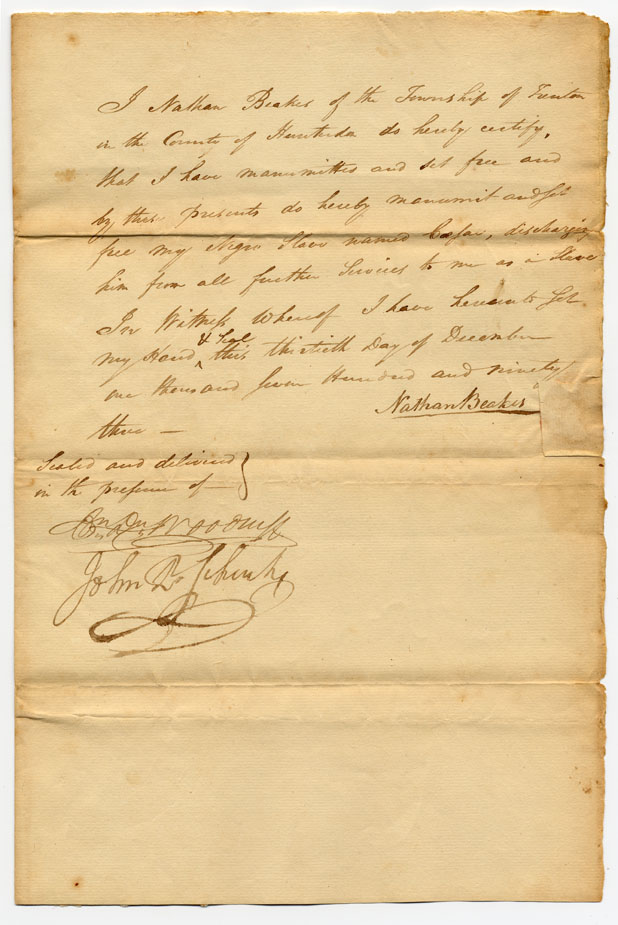 I Nathan Beakes of the Township of Trenton
in the County of Hunterdon do hereby certify,
that I have manumitted and set free and
by these presents do hereby manumit and set
free my Negro Slave named Cæsar, discharging
him from all further Services to me as a Slave
In Witness Whereof I have hereunto set
my Hand & Seal this thirtieth Day of December
one thousand seven Hundred and ninety
three —
Nathan Beakes
Sealed and delivered
in the presence of —
Woodruff
John R. Schenk